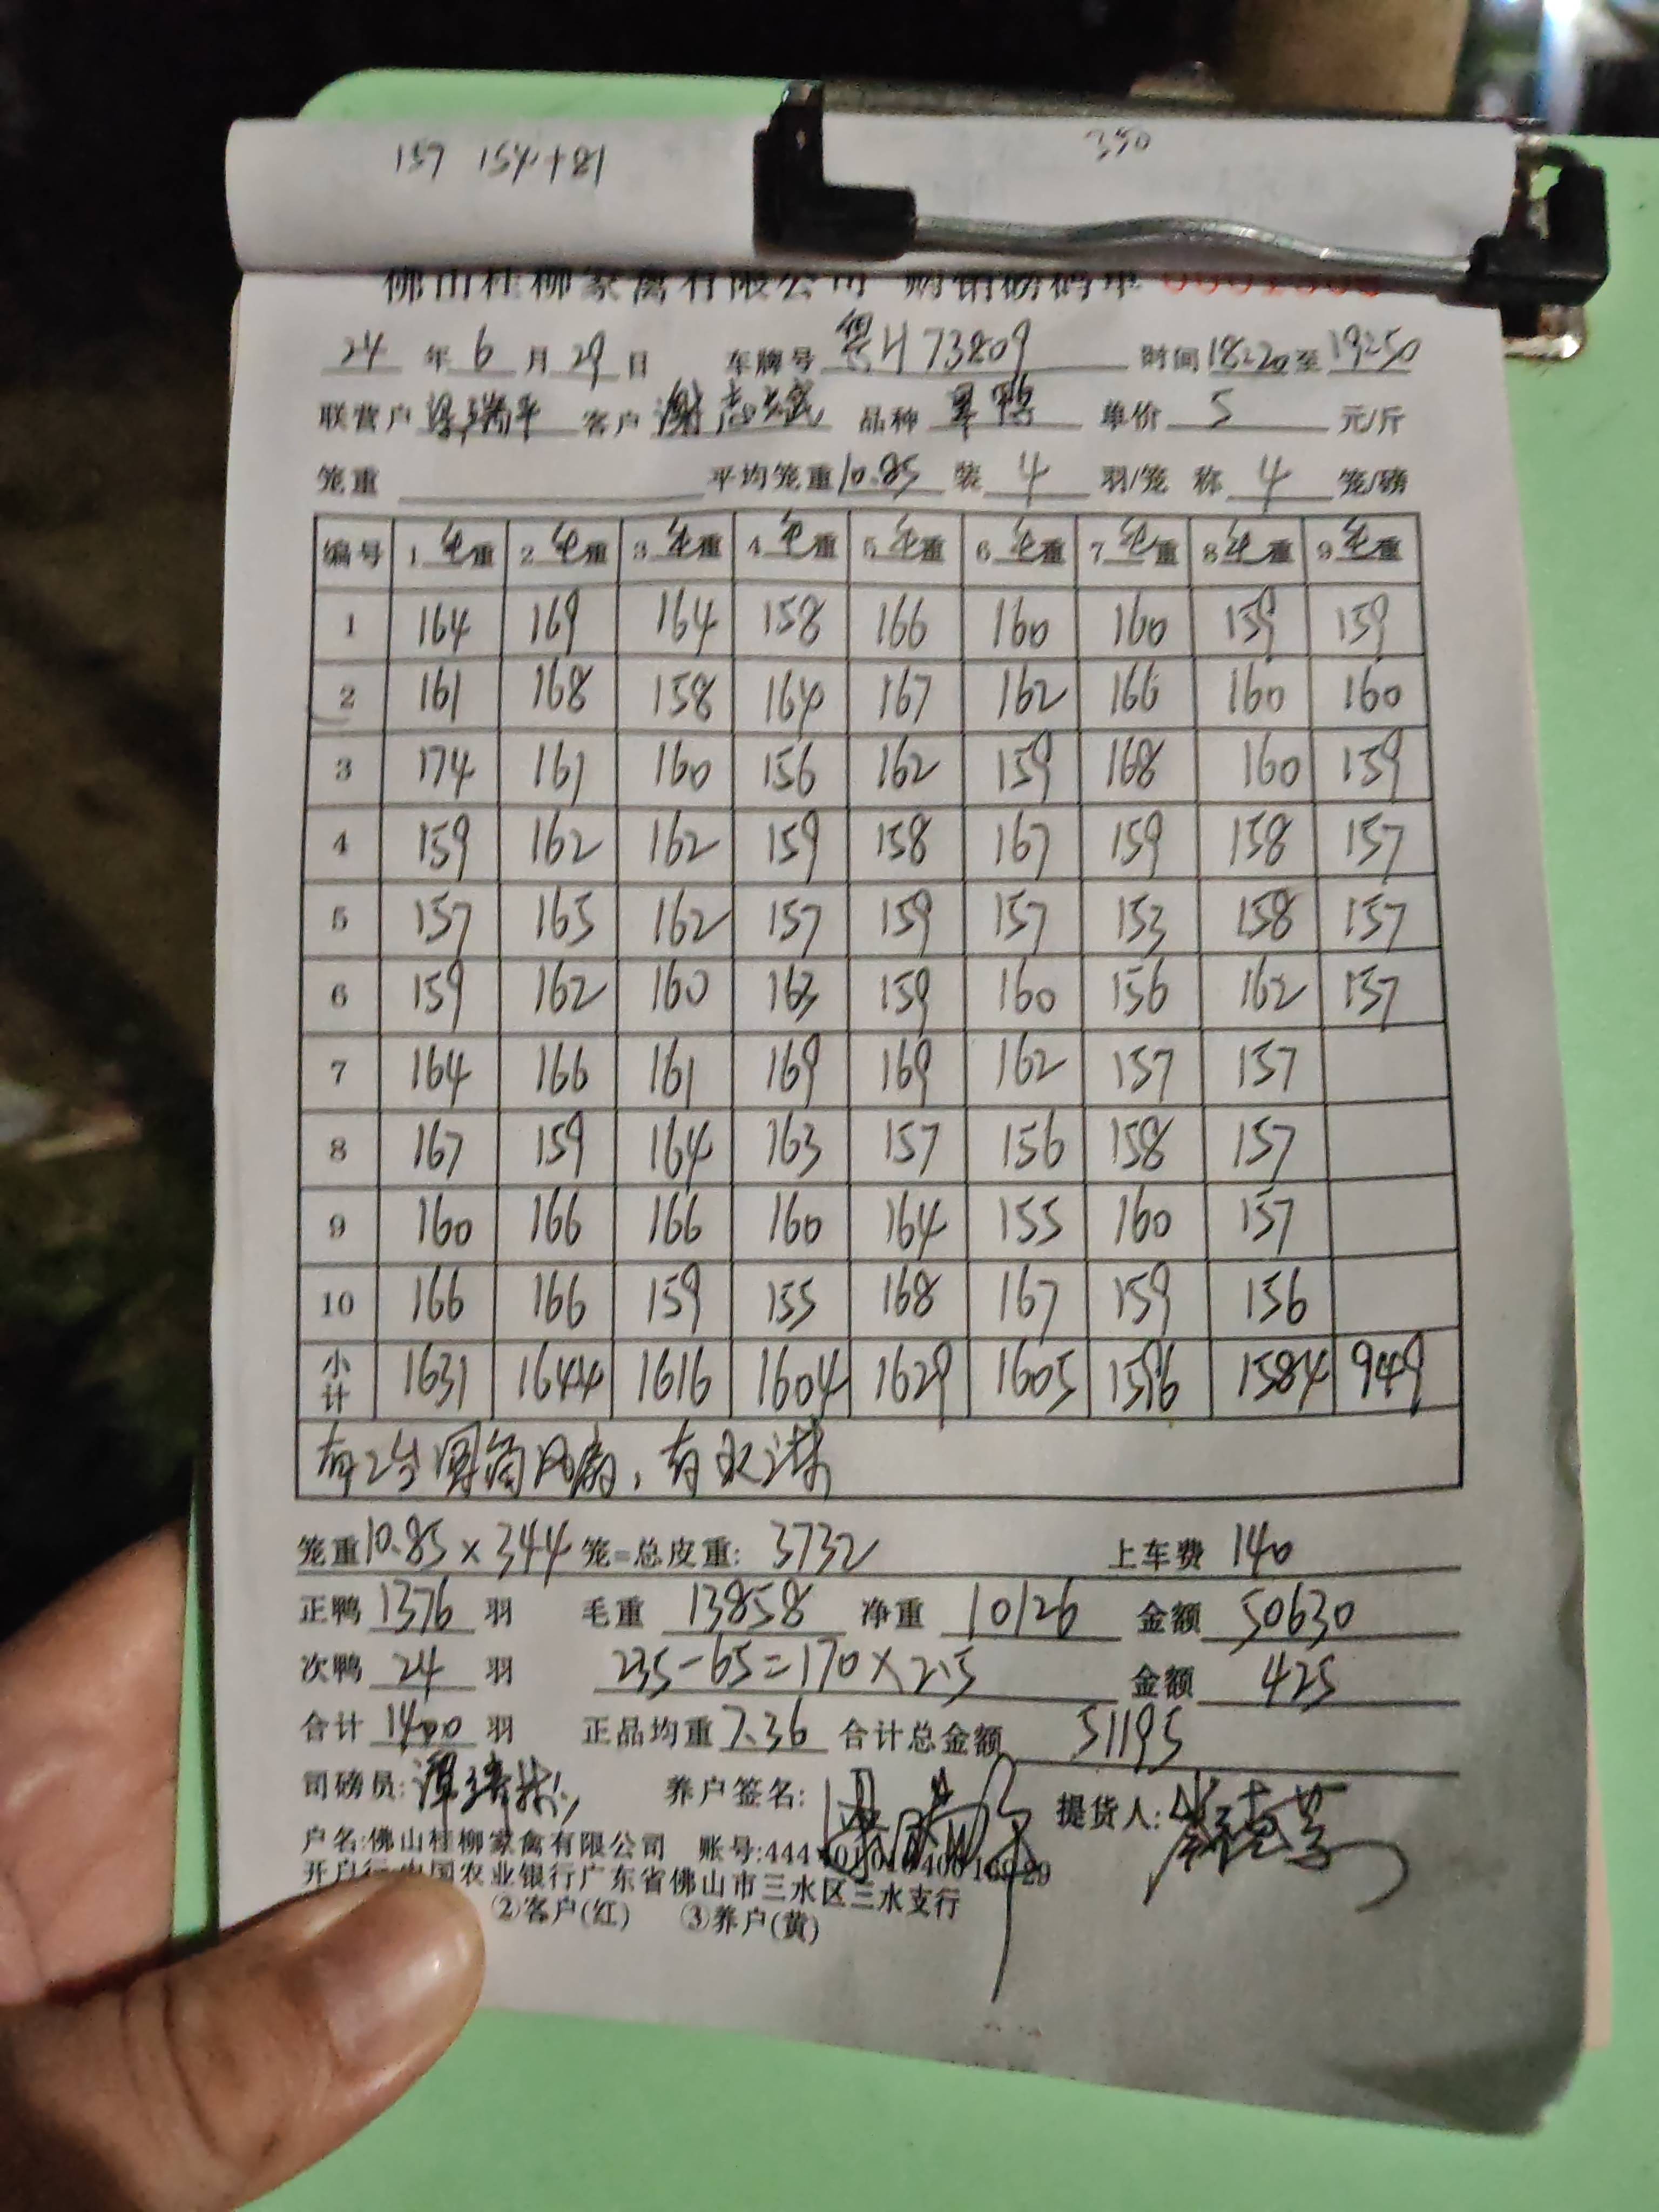 157 154+81
350
佛山桂柳家禽有限公司 购销磅码单
24 年 6 月 29 日 车牌号 粤H73809 时间 18:20 至 19:50
联营户 梁瑞平 客户 谢志斌 品种 单价 5 元/斤
笼重 平均笼重 10.85 装 4 羽/笼 称 4 笼/磅
编号 1 毛重 2 毛重 3 毛重 4 毛重 5 毛重 6 毛重 7 毛重 8 毛重 9 毛重
1 164 169 164 158 166 160 160 159 159
2 161 168 158 164 167 162 166 160 160
3 174 161 160 156 162 159 168 160 159
4 159 162 162 159 158 167 159 158 157
5 157 165 162 157 159 157 153 158 157
6 159 162 160 163 159 160 156 162 157
7 164 166 161 169 169 162 157 157
8 167 159 164 163 157 156 158 157
9 160 166 166 160 164 155 160 157
10 166 166 159 155 168 167 159 156
小计 1631 1644 1616 1604 1629 1605 1596 1584 949
有2台圆筒风扇,有水淋
笼重 10.85 × 344 笼=总皮重: 3732 上车费 140
正鸭 1376 羽 毛重 13858 净重 10126 金额 50630
次鸭 24 羽 235-65=170×2.5 金额 425
合计 1400 羽 正品均重 7.36 合计总金额 51195
司磅员: 养户签名: 提货人:
户名:佛山桂柳家禽有限公司 账号:444
开户行 中国农业银行广东省佛山市三水区三水支行
②客户(红) ③养户(黄)